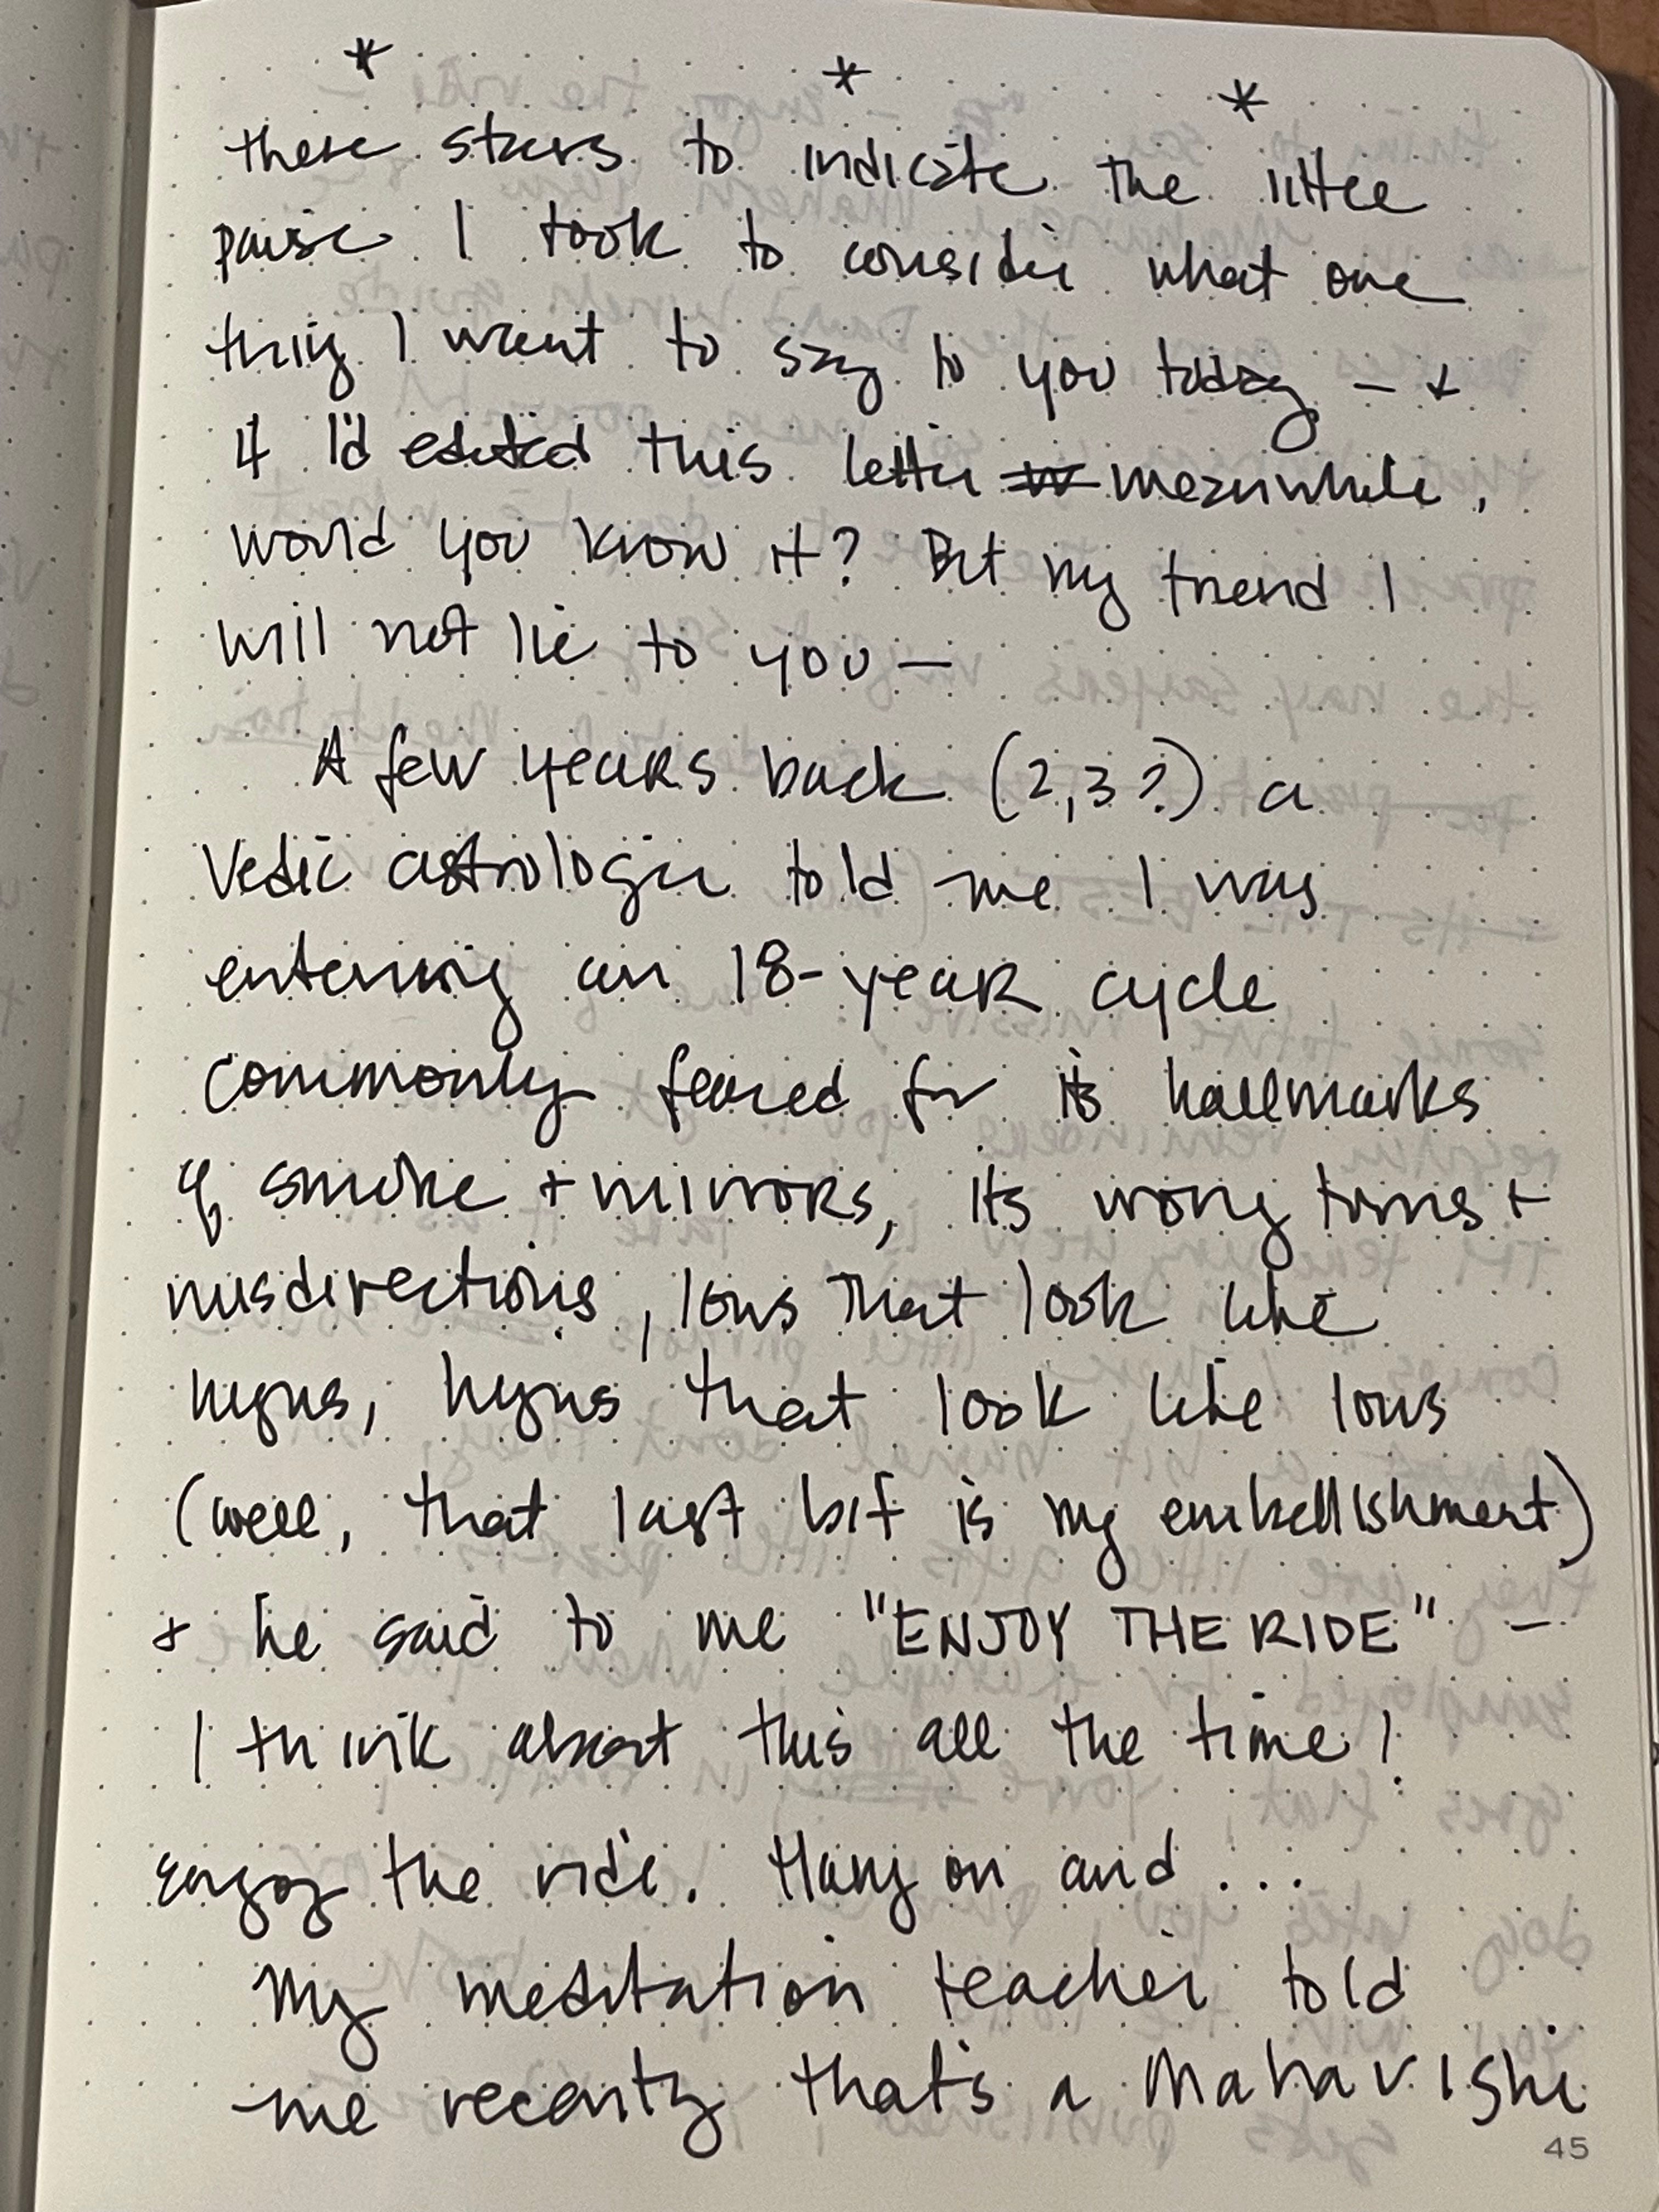 * * *
these stars to indicate the little
pause I took to consider what one
thing I want to say to you today – +
if I'd edited this letter meanwhile,
would you know it? But my friend I
will not lie to you –
A few years back (2,3?) a
Vedic astrologer told me I was
entering an 18-year cycle
commonly feared for its hallmarks
of smoke + mirrors, its wrong turns +
misdirections, lows that look like
highs, highs that look like lows
(well, that last bit is my embellishment)
+ he said to me "ENJOY THE RIDE" –
I think about this all the time!
enjoy the ride. Hang on and ...
My meditation teacher told
me recently that's a Maharishi
45